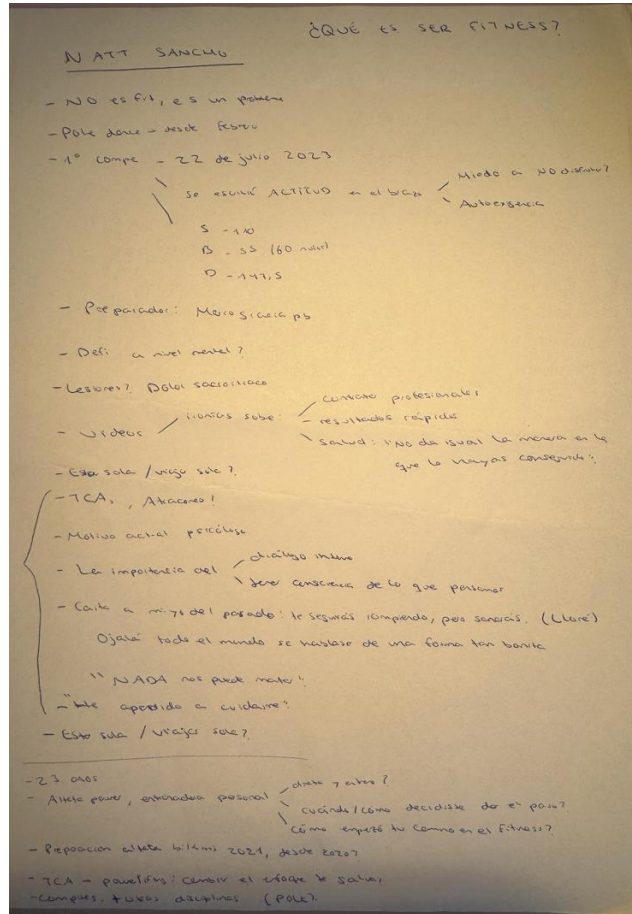 ¿QUÉ ES SER FITNESS?
NATT SANCHO
- NO es fit, es un
- Pole dance - desde febrero
- 1º compe - 22 de julio 2023
Se escribió ACTITUD en el brazo
Miedo a NO disfrutar?
Autoexigencia
S - 110
B - 55 (60 nulo)
D - 147,5
- Preparador: pb
- Defi a nivel mental?
- Lesiones? Dolor sacroiliaco
- Videos
ironías sobre:
contrato profesionales
- resultados rápidos
salud: "No da igual la manera en la
que lo hayas conseguido".
- Estar sola / viajar sola?
- TCA, Atracones!
- Motivo actual psicólogo
- La importancia del
diálogo interno
tener consciencia de lo que pensamos
- Carta a mi yo del pasado: te seguirás rompiendo, pero sanarás. (Lloré)
Ojalá todo el mundo se hablase de una forma tan bonita
"NADA nos puede matar".
- "He aprendido a cuidarme".
- Estar sola / viajar sola?
- 23 años
- Atleta power, entrenadora personal
dieta y entreno?
cuándo/cómo decidiste dar el paso?
cómo empezó tu camino en el fitness?
- Preparación atleta bikini 2021, desde 2020?
- TCA - powerlifting: cambiar el enfoque le salvó
- Compites + otras disciplinas (POLE)?